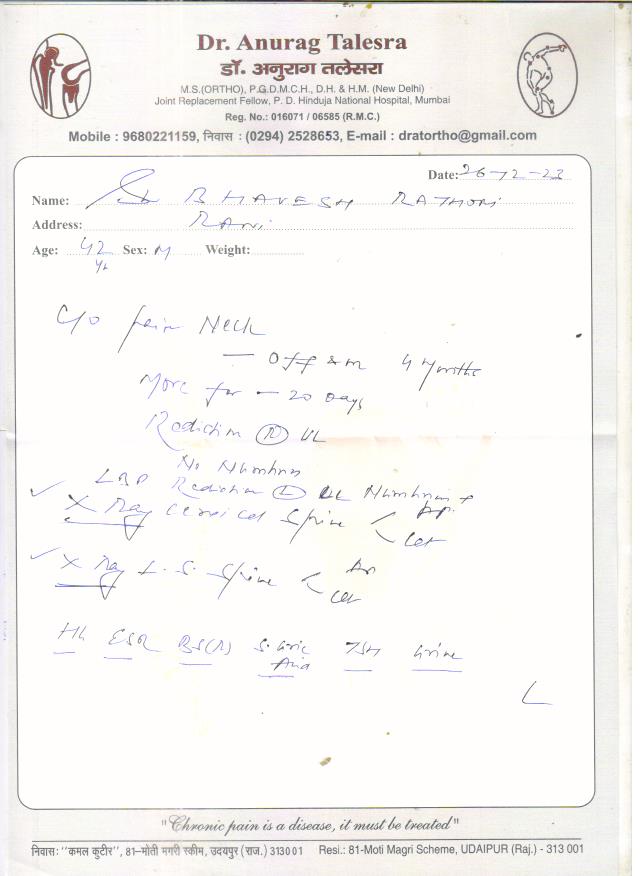 Dr. Anurag Talesra
डॉ. अनुराग तलेसरा
M.S.(ORTHO), P.G.D.M.C.H., D.H. & H.M. (New Delhi)
Joint Replacement Fellow, P. D. Hinduja National Hospital, Mumbai
Reg. No.: 016071 / 06585 (R.M.C.)
Mobile : 9680221159, निवास : (0294) 2528653, E-mail : dratortho@gmail.com
Date: 26-12-23
Name: Sh BHAVESH RATHORE
Address: RANI
Age: 42 yr Sex: M Weight:
C/O pain Neck
— Off & on 4 Months
More for — 20 Days
Radiation (R) UL
No Numbness
LBP Radiation (L) LL Numbness +
✓ X Ray Cervical Spine < AP Lat
✓ X Ray L.S. Spine < AP Lat
Hb ESR BS(R) S. Uric Acid TSH Urine
"Chronic pain is a disease, it must be treated"
निवास: "कमल कुटीर", 81–मोती मगरी स्कीम, उदयपुर (राज.) 313001 Resi.: 81-Moti Magri Scheme, UDAIPUR (Raj.) - 313 001